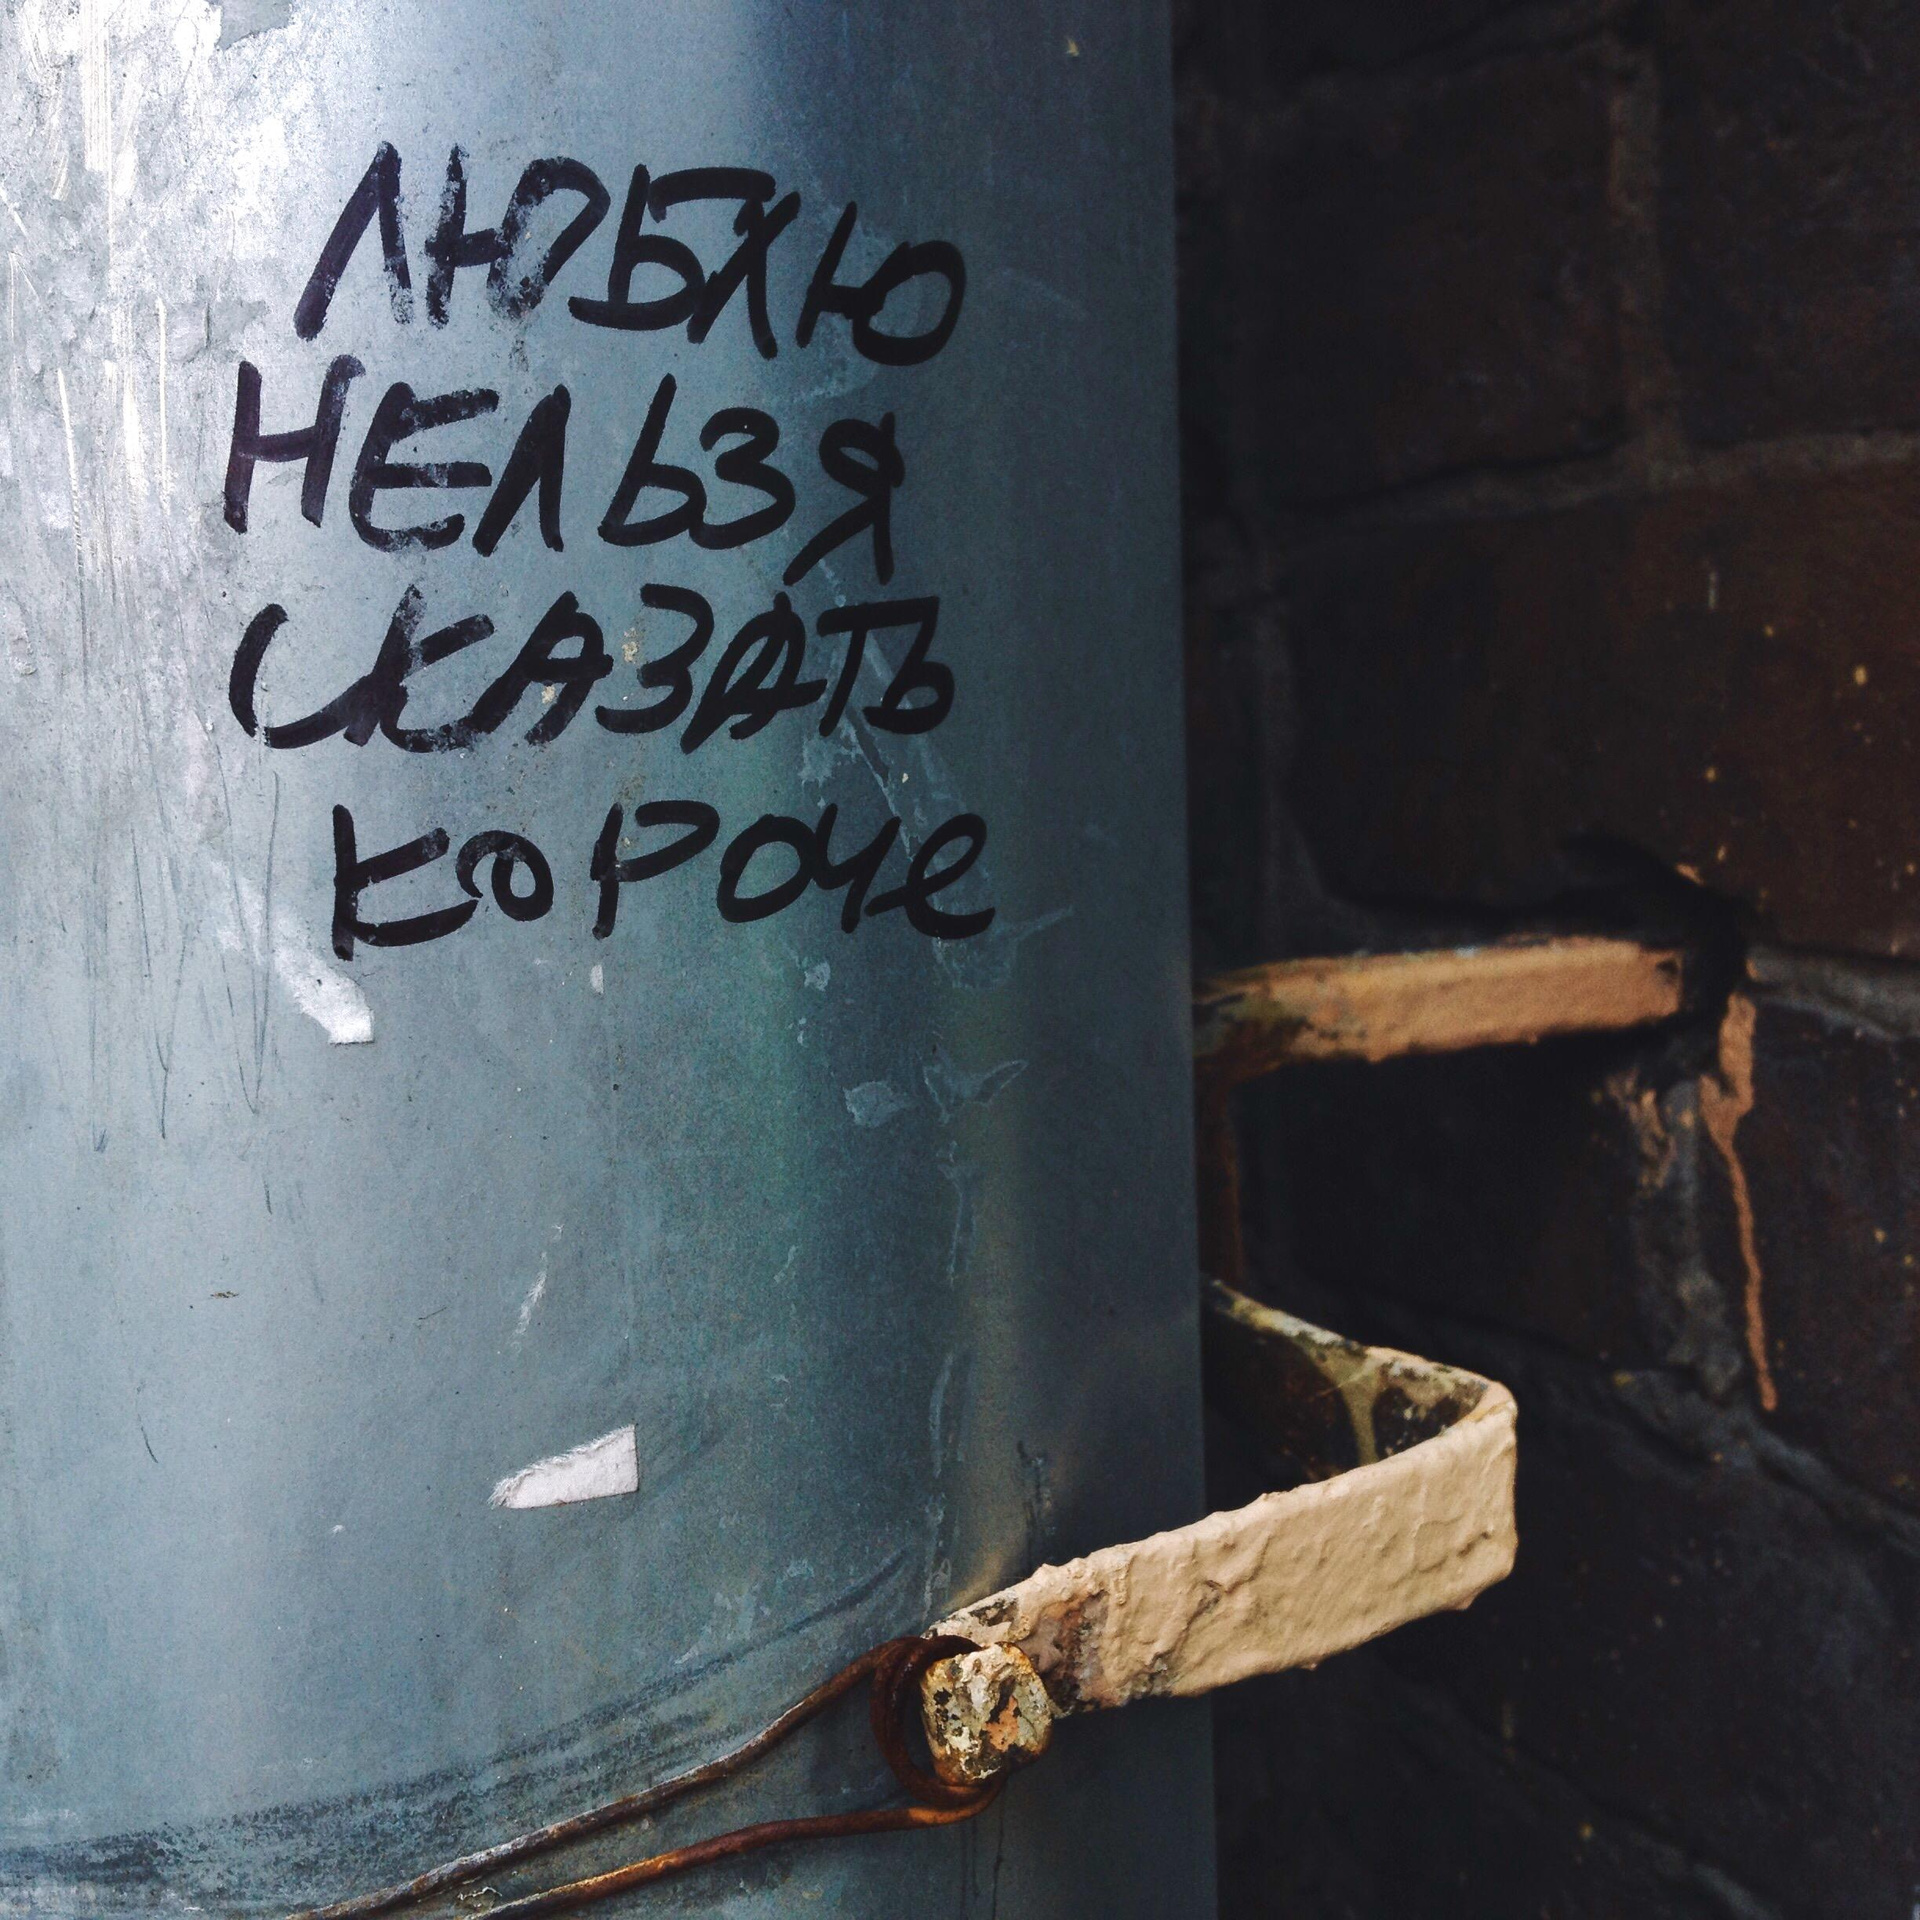 ЛЮБЛЮ
НЕЛЬЗЯ
СКАЗАТЬ
КОРОЧе